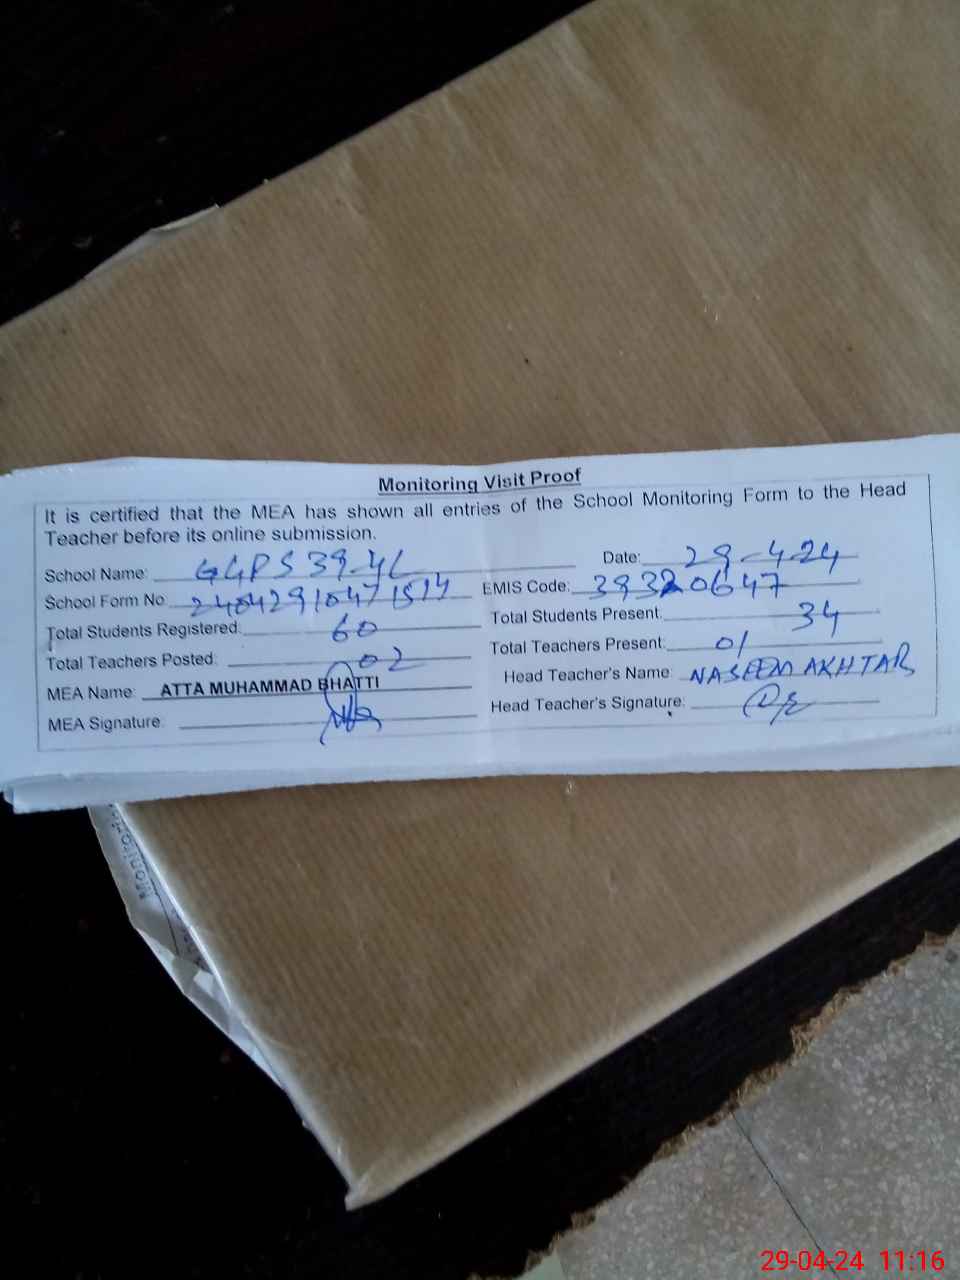 Monitoring Visit Proof
It is certified that the MEA has shown all entries of the School Monitoring Form to the Head
Teacher before its online submission.
School Name: GGPS 39-4L Date: 29-4-24
School Form No. 2404291047 1514 EMIS Code: 39320647
Total Students Registered: 60 Total Students Present: 34
Total Teachers Posted: 02 Total Teachers Present: 01
MEA Name: ATTA MUHAMMAD BHATTI Head Teacher's Name: NASEEM AKHTAR
MEA Signature: Head Teacher's Signature:
29-04-24 11:16